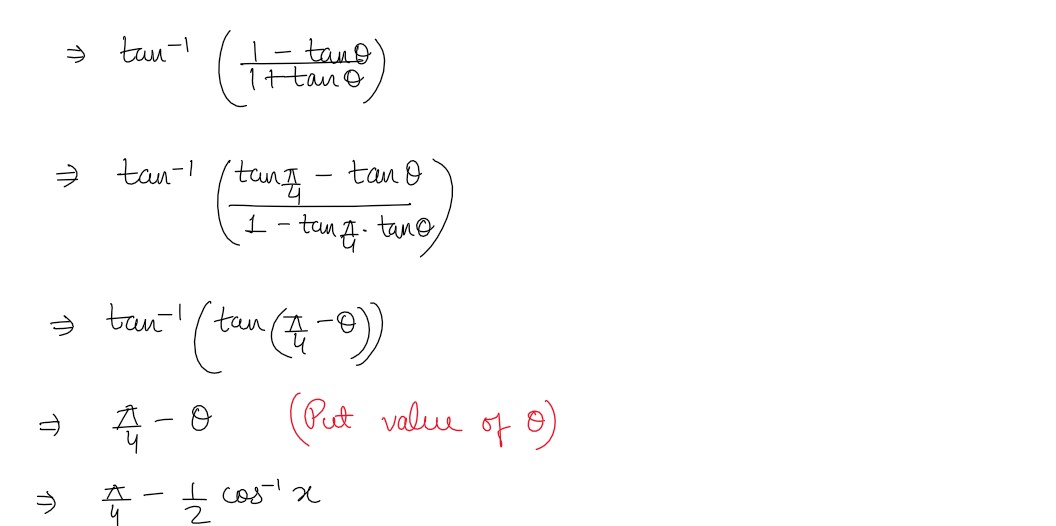 ⇒ tan⁻¹ ((1 - tanθ)/(1 + tanθ))
⇒ tan⁻¹ ((tan π/4 - tan θ)/(1 - tan π/4 · tanθ))
⇒ tan⁻¹ (tan (π/4 - θ))
⇒ π/4 - θ (Put value of θ)
⇒ π/4 - 1/2 cos⁻¹ x